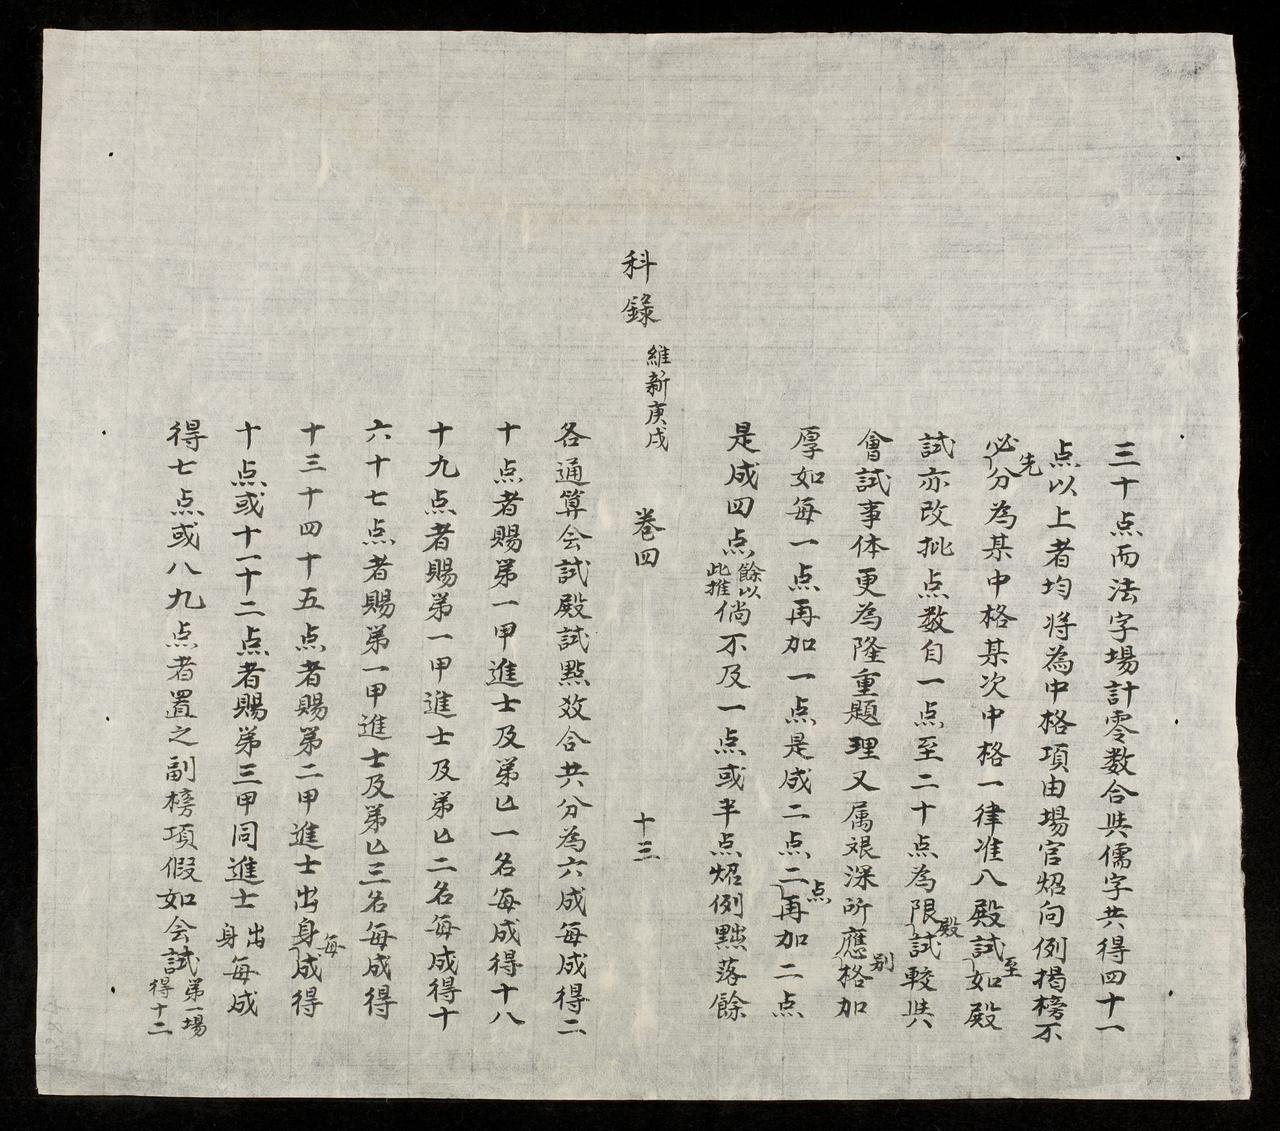 三十点而法字場計零数合𠔥儒字共得四十一
点以上者均将為中格項由場官炤向例揭榜不
必先分為某中格某次中格一律准入殿試至如殿
試亦改批点数自一点至二十点為限殿試較𠔥
會試事体更為隆重題理又属艰深所應别格加
厚如每一点再加一点是成二点二点再加二点
是成四点餘以此推倘不及一点或半点炤例黜落餘
科錄 維新庚戌 卷四 十三
各通算会試殿試點效合共分為六成每成得二
十点者賜第一甲進士及第㐌一名每成得十八
十九点者賜第一甲進士及第㐌二名每成得十
六十七点者賜第一甲進士及第㐌三名每成得
十三十四十五点者賜第二甲進士出身每成得
十点或十一十二点者賜第三甲同進士出身每成
得七点或八九点者置之副榜項假如会試第一場得十二